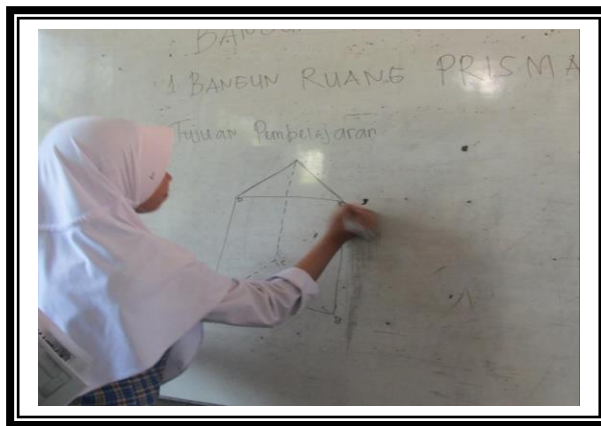 BANGUN
1 BANGUN RUANG PRISMA
Tujuan Pembelajaran